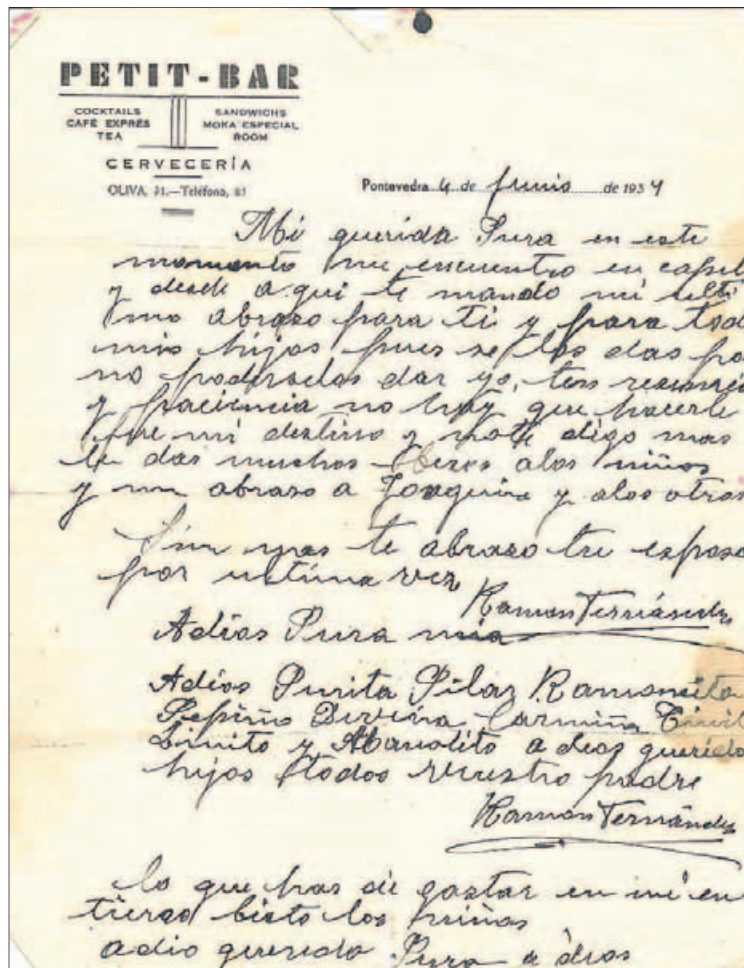 PETIT-BAR
COCKTAILS
CAFÉ EXPRÉS
TEA
SANDWICHS
MOKA ESPECIAL
ROOM
CERVECERÍA
OLIVA, 31.—Teléfono, 85
Pontevedra 4 de Junio de 1937
Mi querida Pura en este
momento me encuentro en capill
y desde aqui te mando mi ulti
mo abraso para ti y para tod
mis hijos pues se los das po
no poderselos dar yo, ten
y paciencia no hay que hacerle
fue mi destino y note digo mas
le das muchos Besos alos niños
y un abraso a Joaquina y alos otros
Sin mas te abraso tu esposo
por ultima vez
Ramon Fernández
Adios Pura mia
Adios Purita Pilar Ramoncito
Pepiño Divina Carmiña
Linito y Manolito a dios querido
hijos todos vuestro padre
Ramon Fernández
lo que has de gastar en mi en
tierro bisto los niños
adio querida Pura a dios